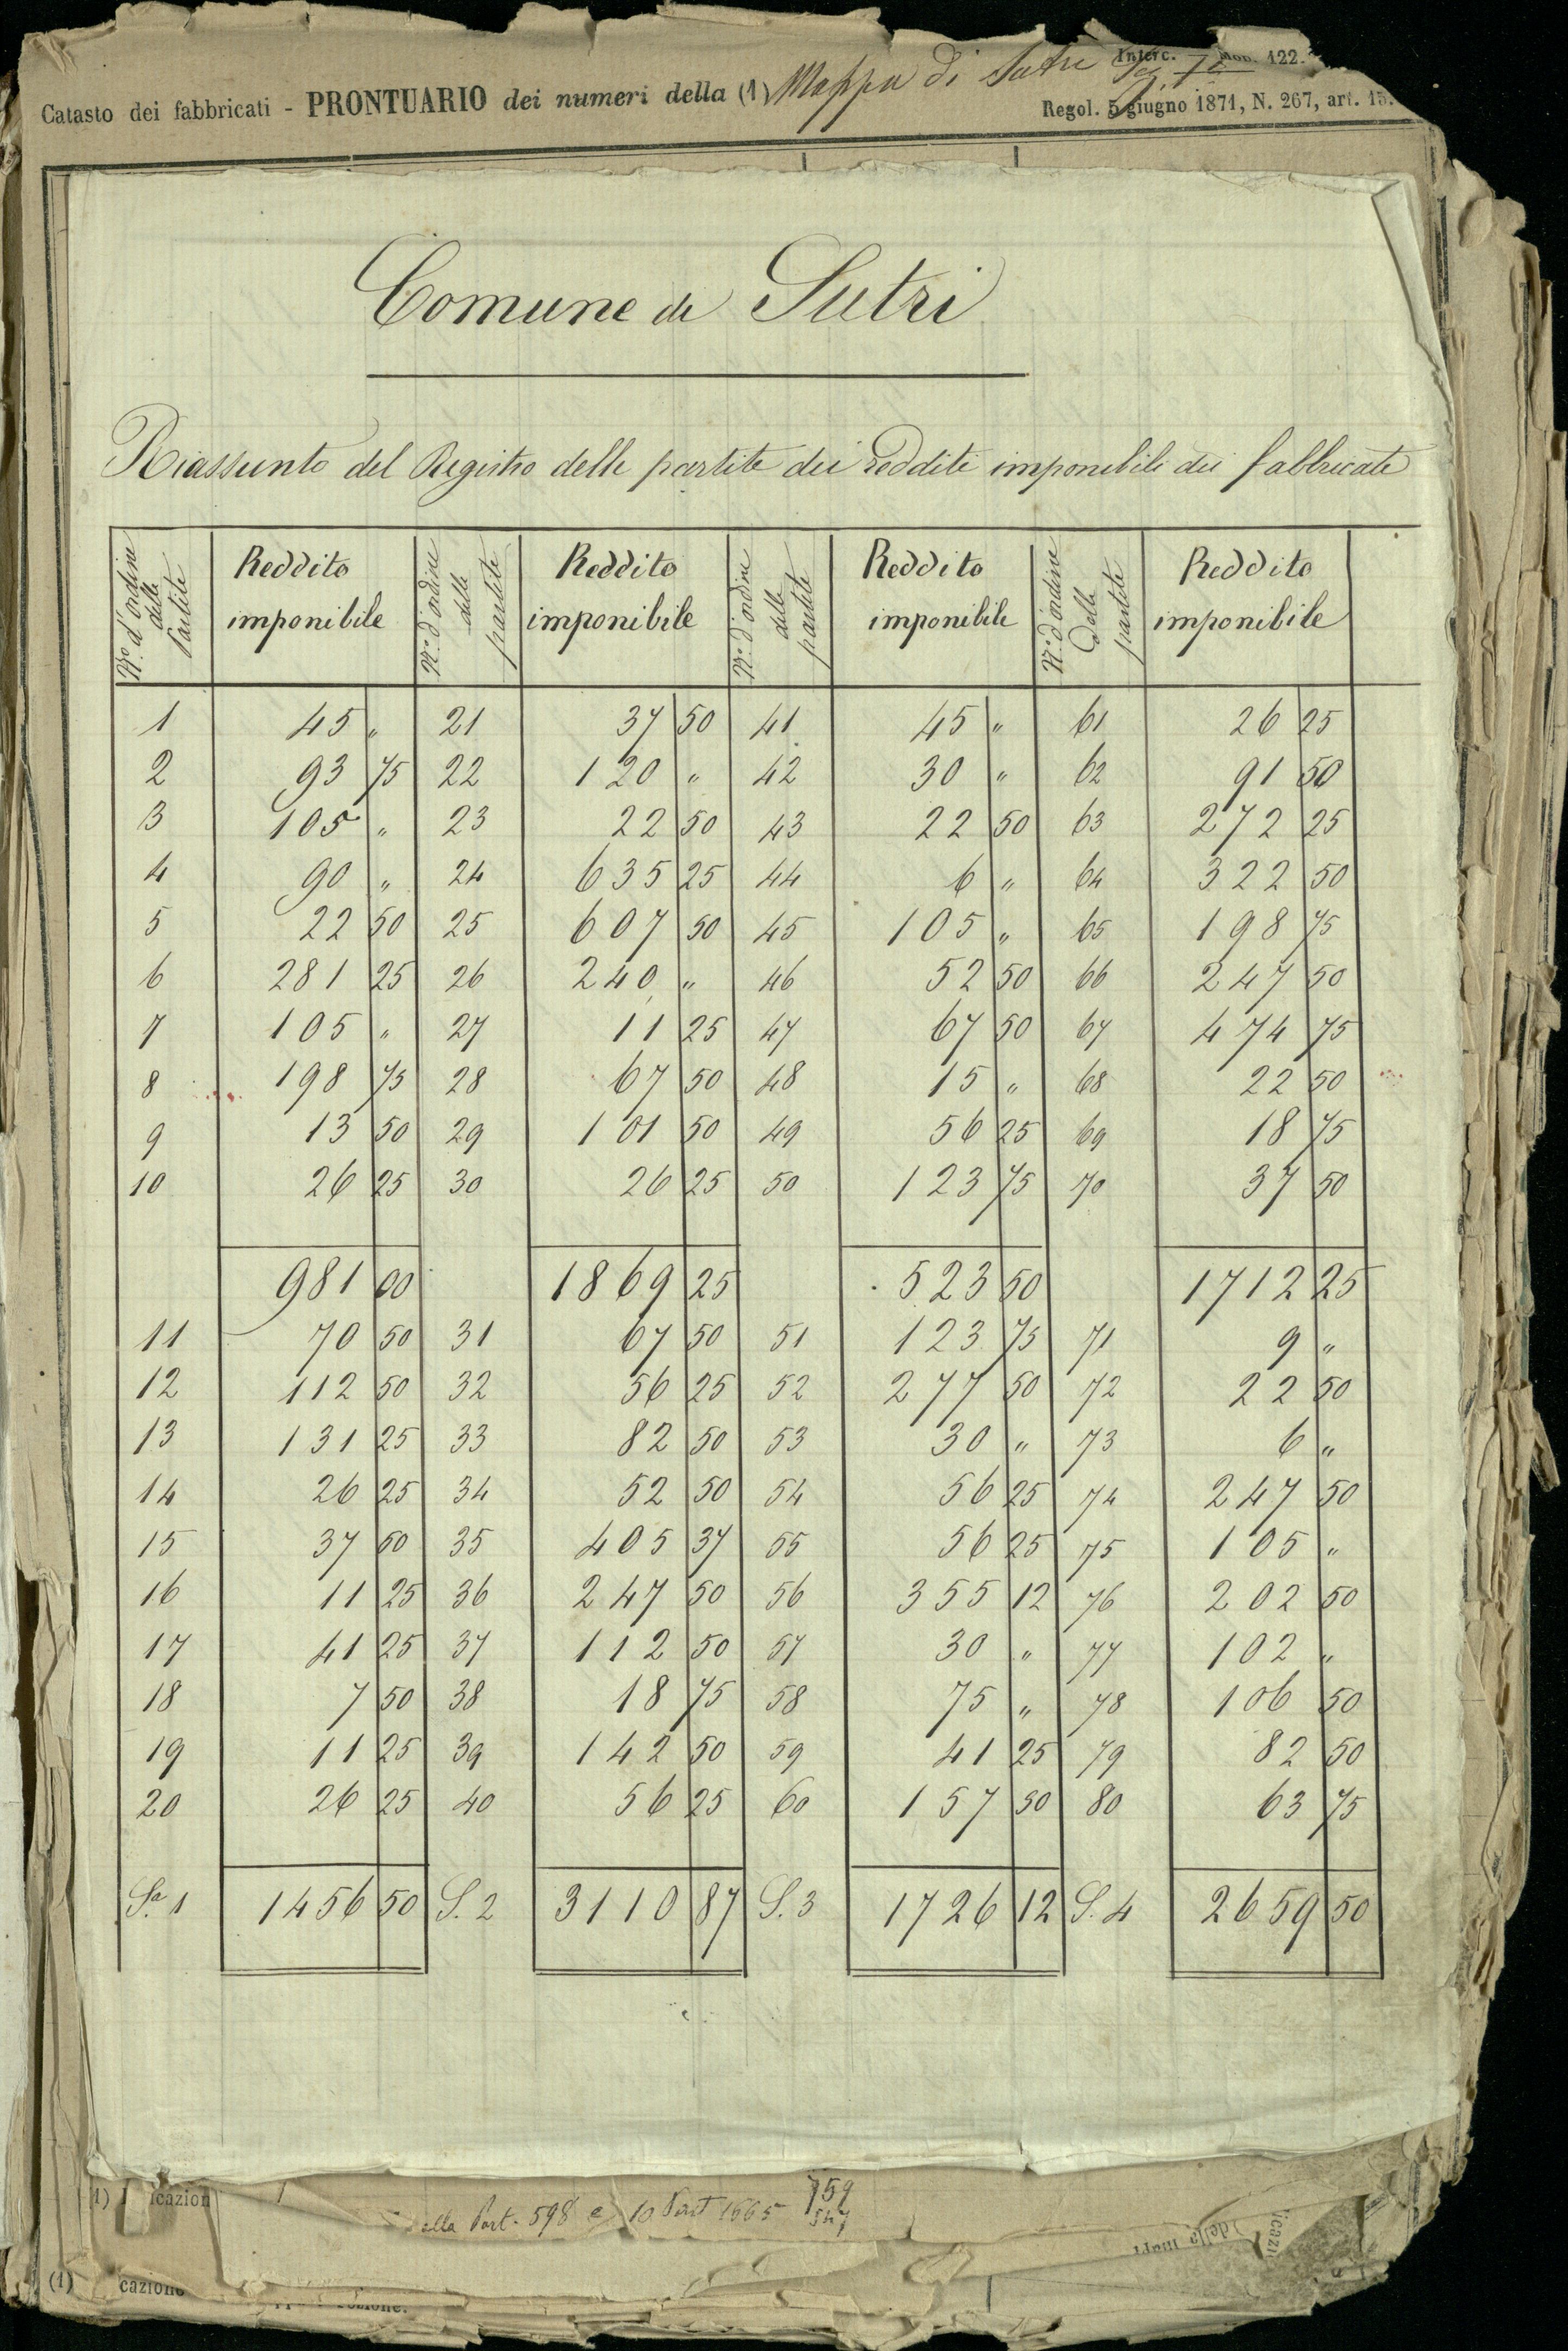 Interc. Mod. 122.
Catasto dei fabbricati - PRONTUARIO dei numeri della (1) Mappa di Sutri
Regol. 5 giugno 1871, N. 267, art. 15.
Comune di Sutri
Riassunto del Registro delle partite dei redditi imponibili dei fabbricati
Nro. d'ordine delle Partite | Reddito imponibile | N.o d'ordine delle partite | Reddito imponibile | N.o d'ordine delle partite | Reddito imponibile | N.o d'ordine delle partite | Reddito imponibile
1 45 " 21 37 50 41 45 " 61 26 25
2 93 75 22 120 " 42 30 " 62 91 50
3 105 " 23 22 50 43 22 50 63 272 25
4 90 " 24 635 25 44 6 " 64 322 50
5 22 50 25 607 50 45 105 " 65 198 75
6 281 25 26 240 " 46 52 50 66 247 50
7 105 " 27 11 25 47 67 50 67 474 75
8 198 75 28 67 50 48 15 " 68 22 50
9 13 50 29 101 50 49 56 25 69 18 75
10 26 25 30 26 25 50 123 75 70 37 50
981 00 1869 25 523 50 1712 25
11 70 50 31 67 50 51 123 75 71 9 "
12 112 50 32 56 25 52 277 50 72 22 50
13 131 25 33 82 50 53 30 " 73 6 "
14 26 25 34 52 50 54 56 25 74 247 50
15 37 50 35 405 37 55 56 25 75 105 "
16 11 25 36 247 50 56 355 12 76 202 50
17 41 25 37 112 50 57 30 " 77 102 "
18 7 50 38 18 75 58 75 " 78 106 50
19 11 25 39 142 50 59 41 25 79 82 50
20 26 25 40 56 25 60 157 50 80 63 75
S.a 1 1456 50 S. 2 3110 87 S. 3 1726 12 S. 4 2659 50
alla Part. 598 e 10 Part 1665 759
547
(1) cazione